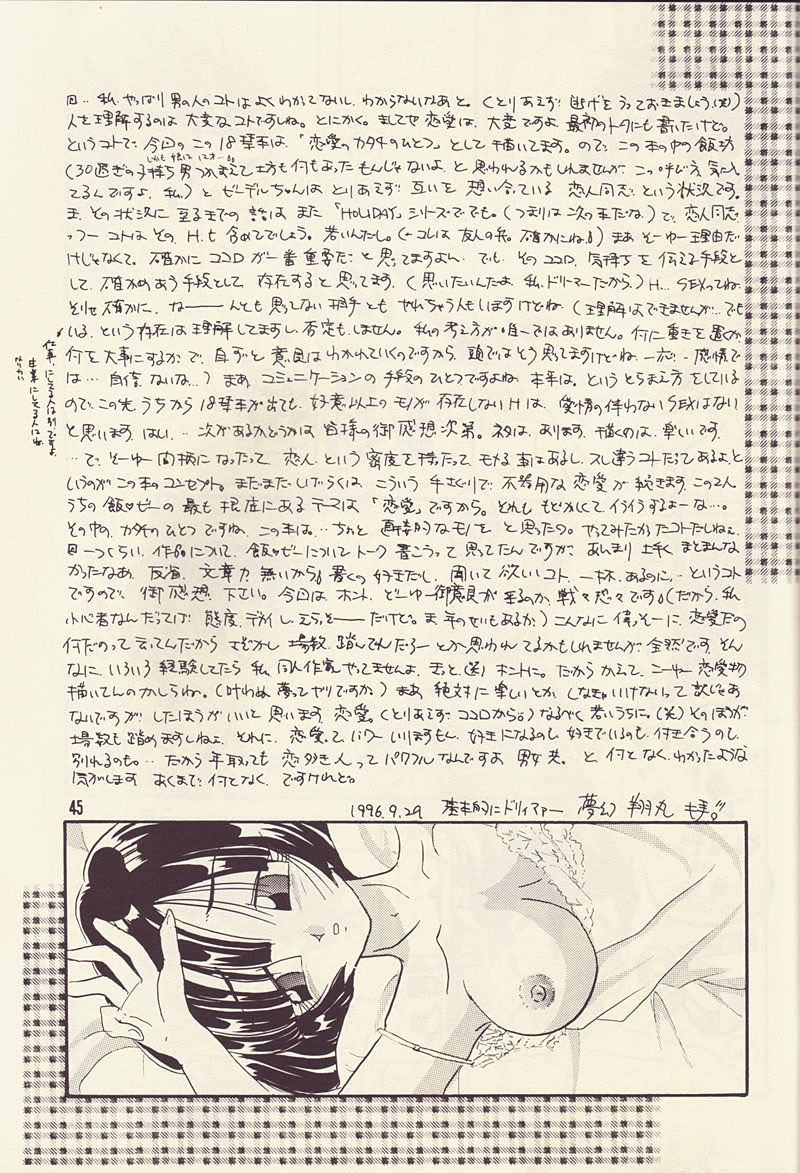 回‥ 私、やっぱり男の人のコトはよくわかってないし、わからないなあと。(とりあえず 逃げをうっておきましょう、(笑))
人を理解するのは大変なコトですしね。とにかく。ましてや恋愛は、大変ですよ。最初のトークにも書いたけど。
というコトで、今回の この18禁本は、「恋愛のカタチのひとつ」として描いてます。ので、この本の中の飯坊
(30過ぎの子持ち男つかまえて坊も何もあったもんじゃないよ、と思われるかもしれませんが、この呼び方、気に入っ
てるんですよ、私)とビーデルちゃんは とりあえず 互いを 想い合っている 恋人同志、という状況です。
ま、その状況に至るまでの 話は また「HOLIDAY」シリーズででも。(つまりは次の本だな。)で、恋人同志
っつーコトは その、Hも含めてでしょう。若いんだし。(←コレは友人の弁。確かにね。)まあ そーゆー理由だ
けじゃなくて。確かに ココロが一番重要だ、と思ってますよん。でも、そのココロ、気持ちを伝える手段と
して、確かめあう手段として 存在すると思ってます。(思いたいんだよ、私、ドリーマーだから。)H… SEXってね。
そりゃ確かに、なーーんとも思ってない相手とも やれちゃう人もいますけどね、(理解はできませんが…でも
いる、という存在は理解してますし、否定も、しません。私の考え方が唯一ではありません。何に重きを置くか、
何を大事にするか で、自ずと意見はわかれていくのですから、頭ではそう思ってますけどね、一応‥感情で
は… 自信、ないな…)まあ、コミュニケーションの手段のひとつですよね、本年は。というとらえ方をしている
ので、この先、うちから18禁本が出ても、好意以上のモノが存在しないHは、愛情の伴わないSEXはない
と思います、はい。… 次があるかどうかは 皆様の御感想次第。ネタは、あります。描くのは、楽しいです。
…で、そーゆー間柄になったって 恋人、という密度を持ったって、モメる事はあるし、スレ違うコトだってあるよ、と
いうのが この本のコンセプト。まだまだ、こういう 手さぐりで、不器用な 恋愛が続きます、この2人。
うちの飯♡ビーの 最も根底にあるテーマは「恋愛」ですから。それも もどかしくて、イライラするよーな…。
その中の、カタチのひとつですね、この本は。‥ちょっと 直接的なモノを と思ったの。やってみたかったコトだしねえ。
回一つくらい、作品について、飯♡ビーについてトーク書こうって思ってたんですが、あんまり上手く まとまんな
かったなあ。反省。文章力、無いから。書くの好きだし、聞いて欲しいコト、一杯、あるのに。‥というコト
ですので、御感想、下さい。今回は ホント、どーゆー御意見が来るのか、戦々恐々です。(だから、私、
小心者なんだってば。態度、デカイし、えらそーーだけど。ま、年のせいもあるか。)こんなに偉そーに、恋愛だの
何だのって 言ってんだから さぞかし 場数、踏んでんだろー とか思われてるかもしれませんが、全然です。そん
なに、いろいろ経験してたら私、同人作家、やってませんよ、きっと、(笑)ホントに。だからかえって、こーゆー 恋愛物
描いてんのかしらね。(叶わぬ夢ってヤツですか。)まあ、絶対に楽しいとか、しなきゃいけないって訳じゃあ
ないですが、したほうがいいと思います、恋愛。(とりあえず、ココロから。)なるべく若いうちに。(笑)そのほうが、
場数も踏めますしねえ。それに、恋愛って、パワーいりますもん。好きになるのも、好きでいるのも、付き合うのも、
別れるのも。‥だから年取っても 恋多き人って パワフルなんですよ、男女共。と、何となく、わかったような
気がします。あくまで、何となく、ですけれど。
仕事にしてる人は別ですよ。
45
1996.9.29 基本的にドリィマァー 夢幻 翔丸